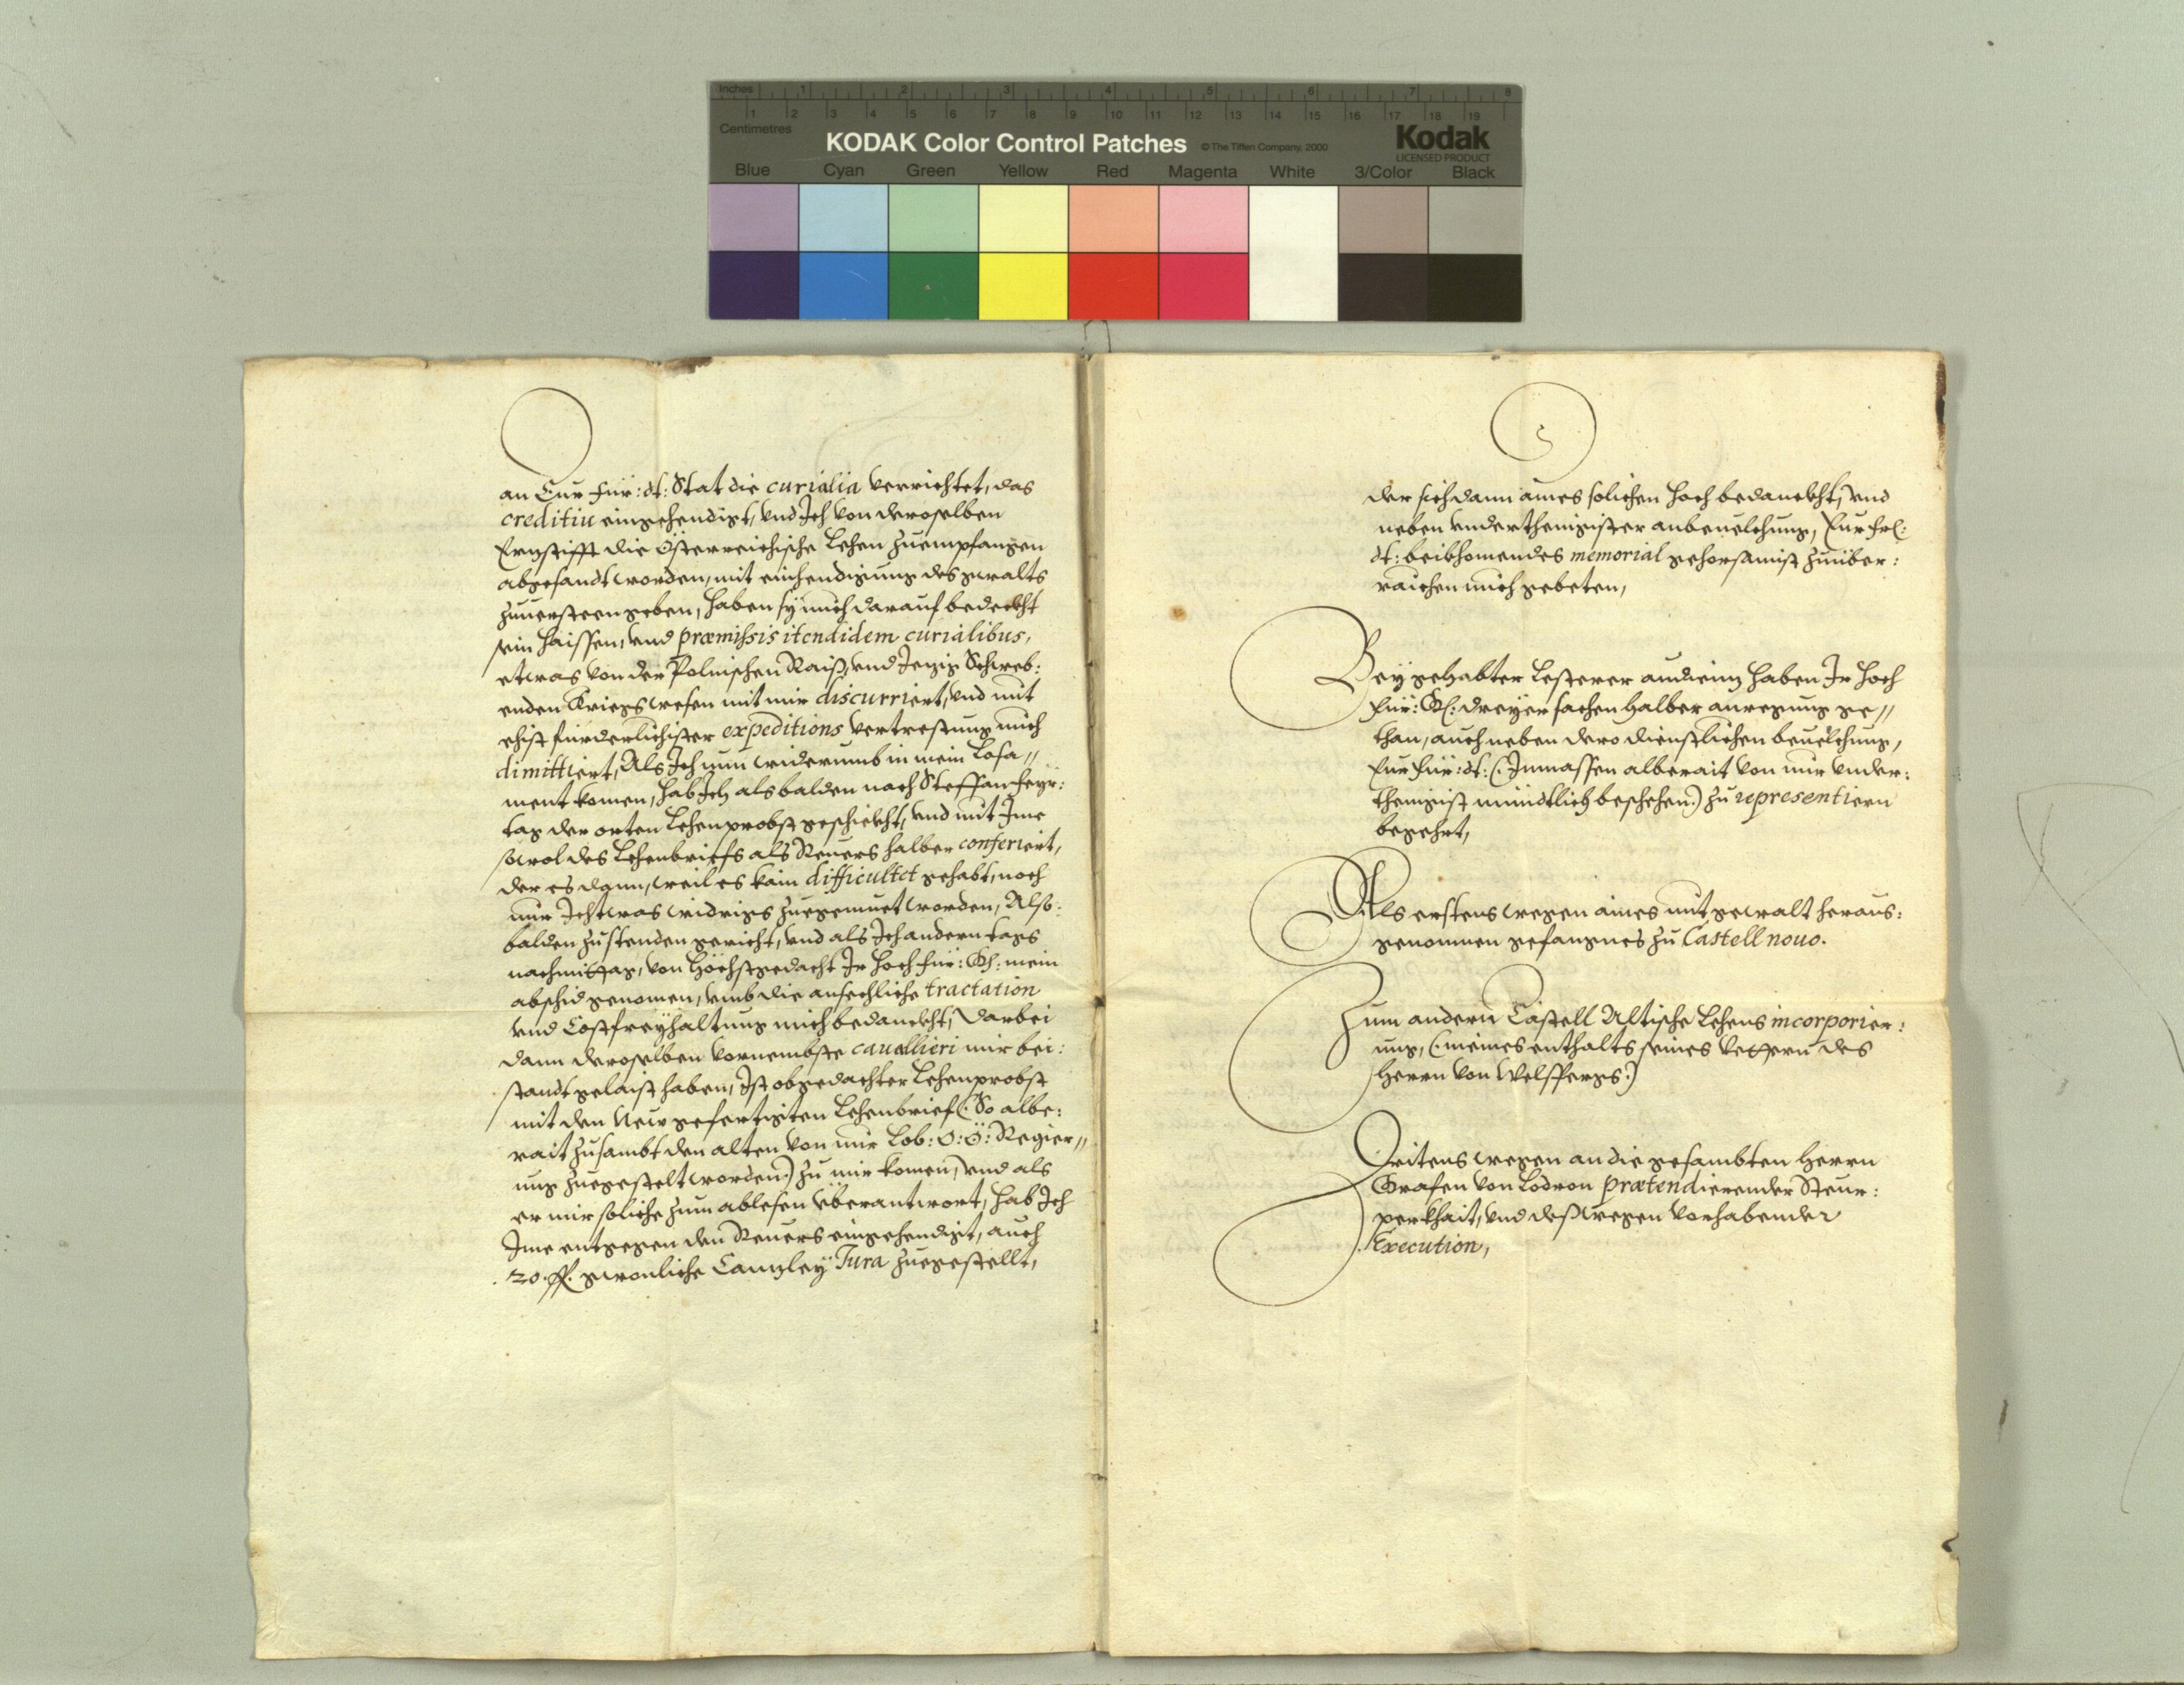 Inches 1 2 3 4 5 6 7 8
1 2 3 4 5 6 7 8 9 10 11 12 13 14 15 16 17 18 19
Centimetres
KODAK Color Control Patches © The Tiffen Company, 2000 Kodak
LICENSED PRODUCT
Blue Cyan Green Yellow Red Magenta White 3/Color Black
an Eur Für: dt: Stat die curialia verrichtet, das
creditiu eingehendigt, vnd Ich von deroselben
Erzstifft die Österreichische Lehen zuempfangen
abgesandt worden, mit einhendigung des gwalts
zuuersteen geben, haben sy mich darauf bedeckht
sein haissen, vnd præmissis itendidem curialibus,
etwas von der Polnischen Raiß, vnd Jezig Schweb:
enden Kriegswesen mit mir discurriert, vnd mit
ehist fürderlichister expeditions vertrestung mich
dimittiert, Als Ich nun widerumb in mein Losa„
ment komen, hab Ich alsbalden nach Steffan Feyr:
tag der orten Lehenprobst geschickht, vnd mit Ime
sowol des Lehenbriefs als Reuers halber conferiert,
der es dann, weil es kain difficultet gehabt, noch
mir Ichtwas widrigs zuegemuet worden, Also:
balden zustenden gericht, vnd als Ich andern tags
nachmittag, von Höchstgedacht Ir Hoch für: Gl: mein
abschid genomen, vmb die ansechliche tractation
vnd Costfreyhaltung mich bedanckht, Darbei
dann deroselben vornembste cauallieri mir bei:
standt gelaist haben, Ist obgedachter Lehenprobst
mit den New gefertigten Lehenbrief (: So albe:
rait zusambt den alten von mir Lob: O: Ö: Regier„
ung zuegestelt worden :) zu mir komen, vnd als
er mir soliche zum ablesen vberantwort, hab Ich
Ime entgegen den Reuers eingehendigt, auch
20. ff. gwonliche Canzley Iura zuegestellt,
der sich dann aines solichen hoch bedanckht, vnd
neben vnderthenigister anbeuelchung, Eur Frl:
dt: beikhomendes memorial gehorsamist zuüber:
raichen mich gebeten,
Bey gehabter Lesterer audienz haben Ir Hoch
Für: Gl: dreyer sachen halber anregung ge„
than, auch neben dero dienstlichen beuelchung,
Eur Für: dt: (: Inmassen alberait von mir vnder:
thenigist mündtlich beschehen :) zu representiern
begehrt,
Als erstens wegen aines mit gewalt heraus:
genomnen gefangnes zu Castell nouo.
Zum andern Castell Altische Lehens incorporier:
ung, (: meines enthalts seines Vettern des
Herrn von Welssperg :)
Dritens wegen an die gesambten Herrn
Grafen von Lodron prætendierender Steur:
perkhait, vnd desswegen vorhabender
Execution,